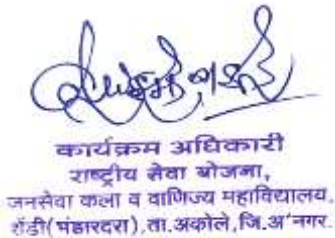 कार्यक्रम अधिकारी
राष्ट्रीय सेवा योजना,
जनसेवा कला व वाणिज्य महाविद्यालय,
शेंडी(भंडारदरा),ता.अकोले,जि.अ'नगर